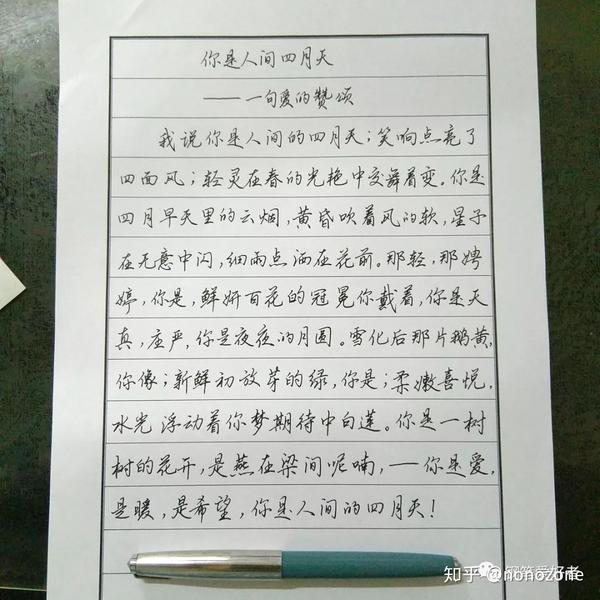 你是人间四月天
——一句爱的赞颂
我说你是人间的四月天；笑响点亮了
四面风；轻灵在春的光艳中交舞着变。你是
四月早天里的云烟，黄昏吹着风的软，星子
在无意中闪，细雨点洒在花前。那轻，那娉
婷，你是，鲜妍百花的冠冕你戴着，你是天
真，庄严，你是夜夜的月圆。雪化后那片鹅黄，
你像；新鲜初放芽的绿，你是；柔嫩喜悦，
水光浮动着你梦期待中白莲。你是一树
树的花开，是燕在梁间呢喃，—你是爱，
是暖，是希望，你是人间的四月天！
钢笔爱好者
知乎 @nonozone